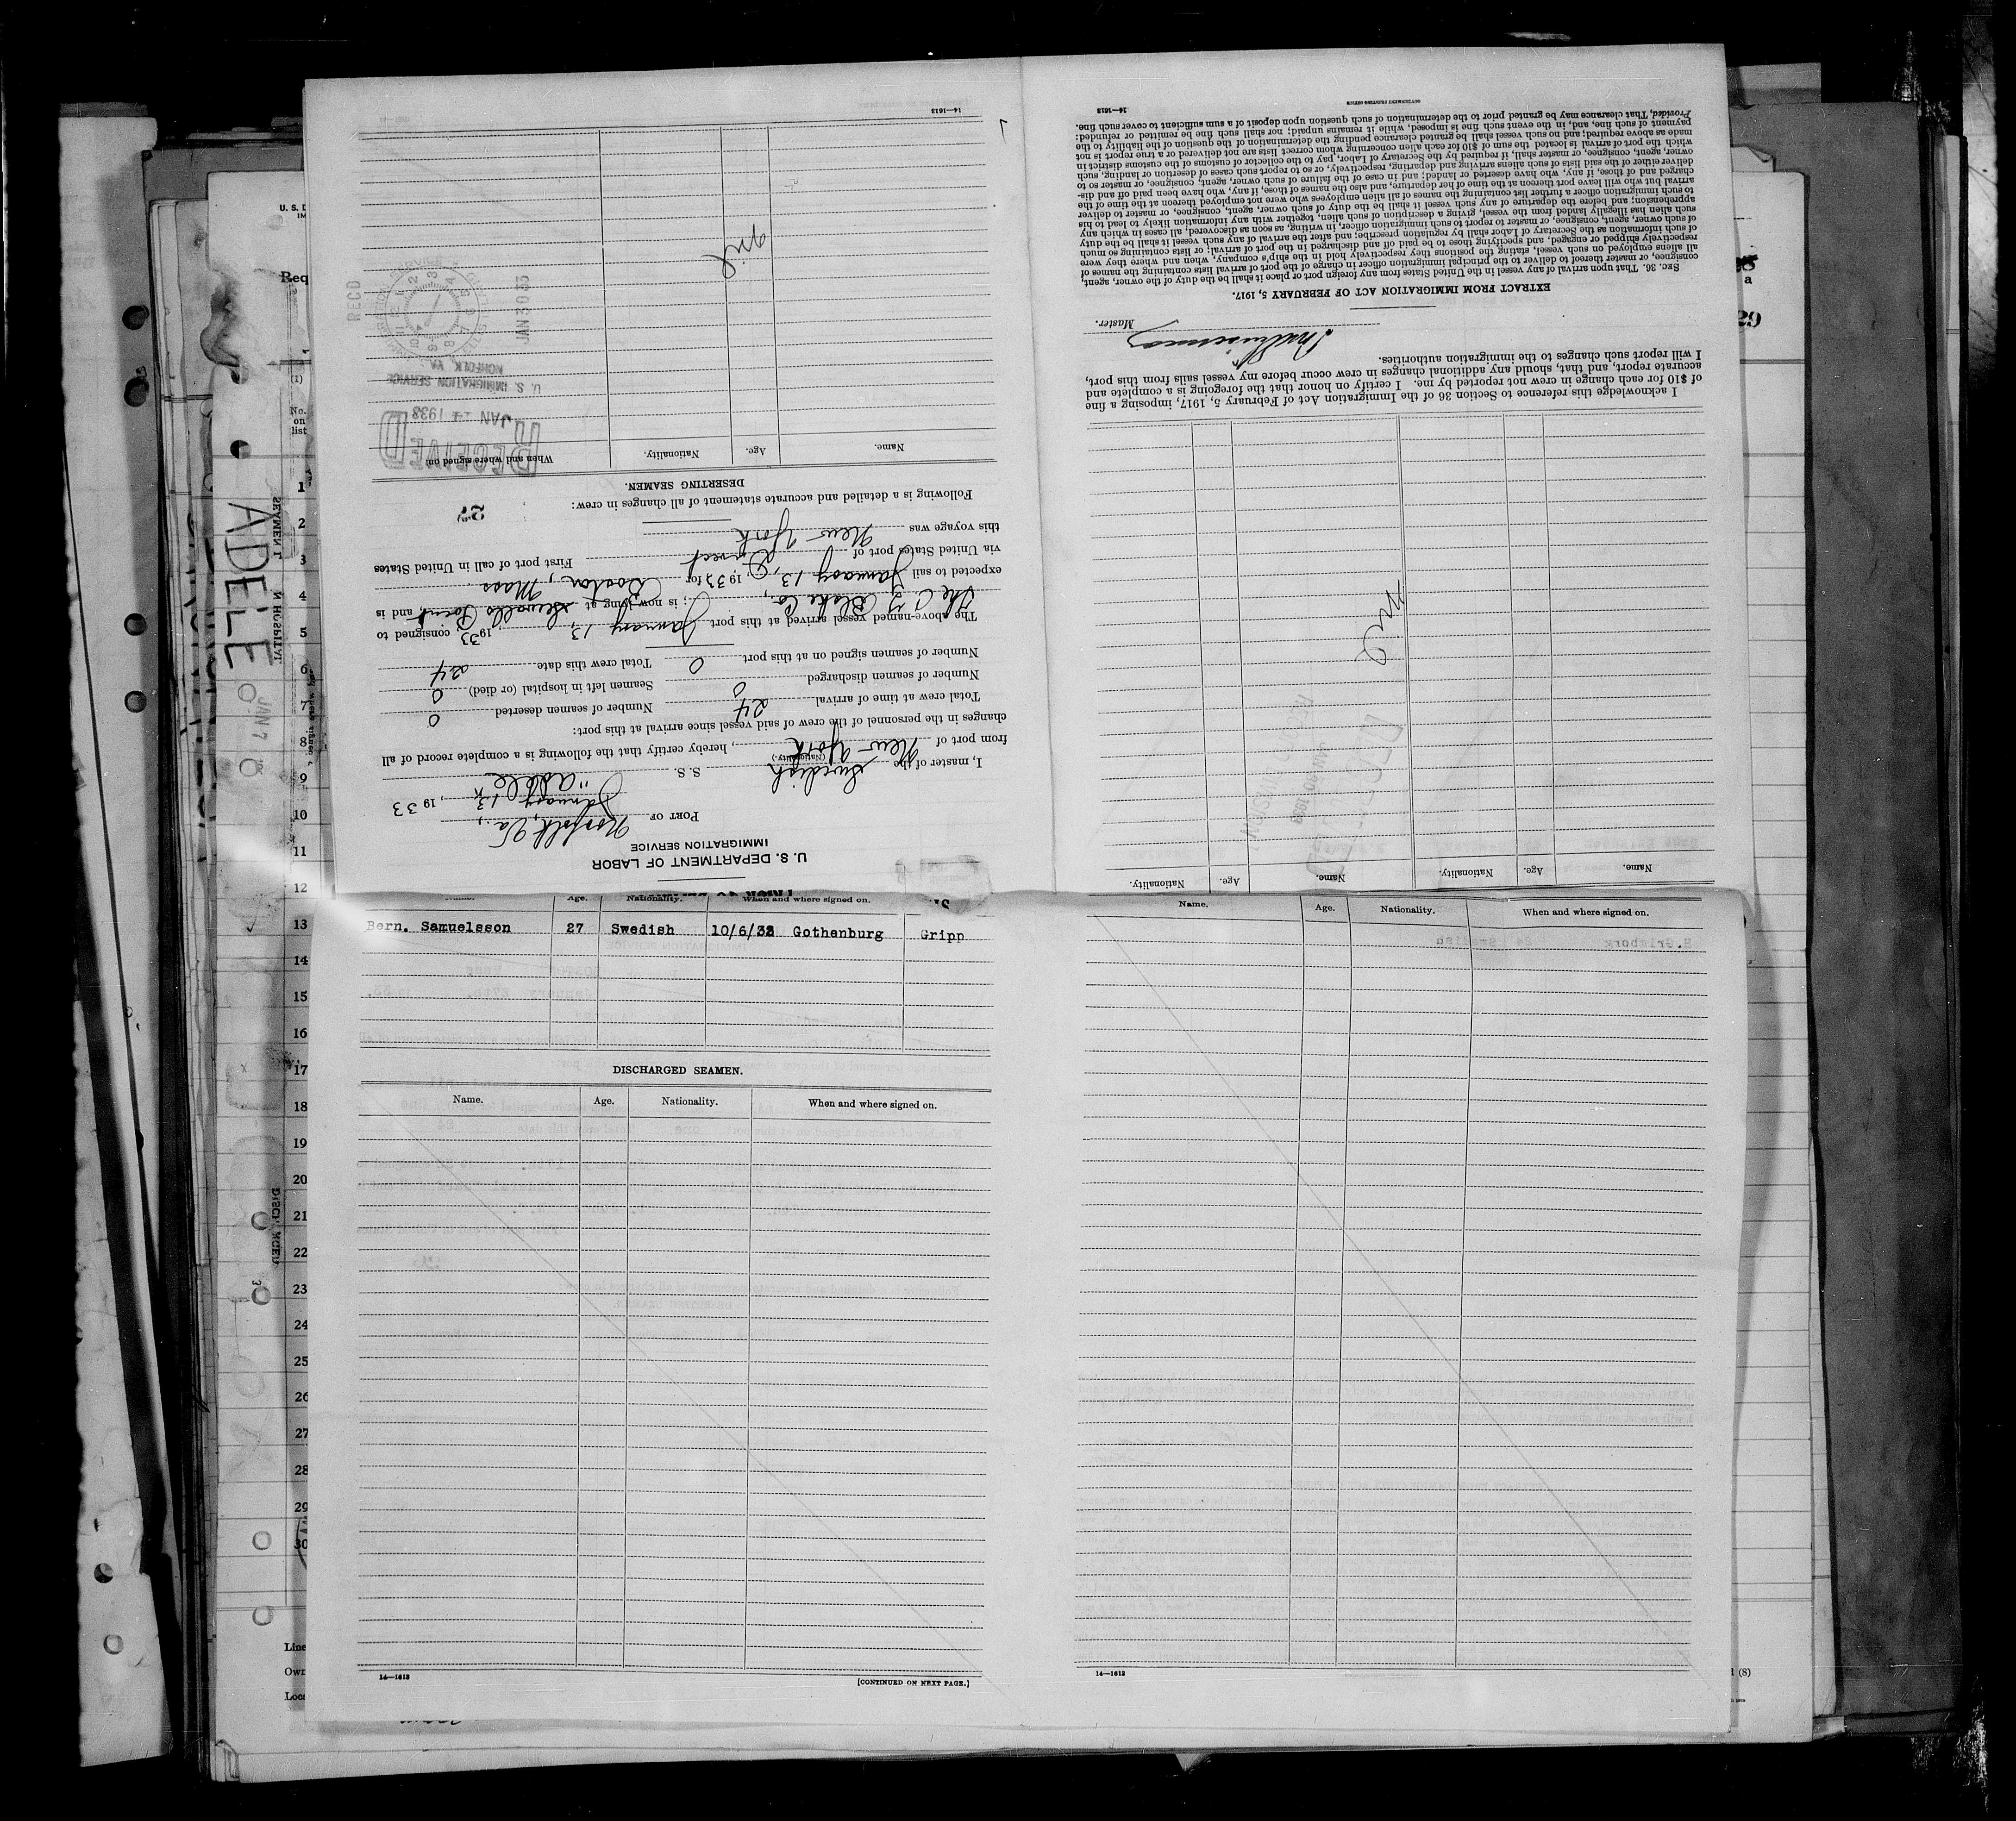 U. S. DEPARTMENT OF LABOR
IMMIGRATION SERVICE
PORT OF Norfolk, Va.,
January 13, 1933
I, master of the Swedish S. S. "Adele"
(Nationality.)
from port of New York, hereby certify that the following is a complete record of all
changes in the personnel of the crew of said vessel since arrival at this port:
Total crew at time of arrival 24 Number of seamen deserted 0
Number of seamen discharged 0 Seamen left in hospital (or died) 0
Number of seamen signed on at this port 0 Total crew this date 24
The above-named vessel arrived at this port January 13, 1933, consigned to
The C G Blake Co., ; is now lying at Sewalls Point, and is
expected to sail January 13, 1933 for Boston, Mass.
via United States port of Direct First port of call in United States
this voyage was New York
27
Following is a detailed and accurate statement of all changes in crew:
DESERTING SEAMEN.
Name. Age. Nationality. When and where signed on.
RECEIVED
JAN 14 1933
U. S. IMMIGRATION SERVICE
NORFOLK, VA.
REC'D
JAN 30 33
Nil
14—1613
Name. Age. Nationality. Name. Age. Nationality.
Nil
I acknowledge this reference to Section 36 of the Immigration Act of February 5, 1917, imposing a fine
of $10 for each change in crew not reported by me. I certify on honor that the foregoing is a complete and
accurate report, and that, should any additional changes in crew occur before my vessel sails from this port,
I will report such changes to the immigration authorities.
Master.
EXTRACT FROM IMMIGRATION ACT OF FEBRUARY 5, 1917.
Sec. 36. That upon arrival of any vessel in the United States from any foreign port or place it shall be the duty of the owner, agent,
consignee, or master thereof to deliver to the principal immigration officer in charge of the port of arrival lists containing the names of
all aliens employed on such vessel, stating the positions they respectively hold in the ship's company, when and where they were
respectively shipped or engaged, and specifying those to be paid off and discharged in the port of arrival; or lists containing so much
of such information as the Secretary of Labor shall by regulation prescribe; and after the arrival of any such vessel it shall be the duty
of such owner, agent, consignee, or master to report to such immigration officer, in writing, as soon as discovered, all cases in which any
such alien has illegally landed from the vessel, giving a description of such alien, together with any information likely to lead to his
apprehension; and before the departure of any such vessel it shall be the duty of such owner, agent, consignee, or master to deliver
to such immigration officer a further list containing the names of all alien employees who were not employed thereon at the time of the
arrival but who will leave port thereon at the time of her departure, and also the names of those, if any, who have been paid off and dis-
charged and of those, if any, who have deserted or landed; and in case of the failure of such owner, agent, consignee, or master so to
deliver either of the said lists of such aliens arriving and departing, respectively, or so to report such cases of desertion or landing, such
owner, agent, consignee, or master shall, if required by the Secretary of Labor, pay to the collector of customs of the customs district in
which the port of arrival is located the sum of $10 for each alien concerning whom correct lists are not delivered or a true report is not
made as above required; and no such vessel shall be granted clearance pending the determination of the question of the liability to the
payment of such fine, and, in the event such fine is imposed, while it remains unpaid; nor shall such fine be remitted or refunded:
Provided, That clearance may be granted prior to the determination of such question upon deposit of a sum sufficient to cover such fine.
14—1613 GOVERNMENT PRINTING OFFICE
Age. Nationality. When and where signed on.
Bern. Samuelsson 27 Swedish 10/6/32 Gothenburg Gripp
DISCHARGED SEAMEN.
Name. Age. Nationality. When and where signed on.
14—1613
[CONTINUED ON NEXT PAGE.]
Name. Age. Nationality. When and where signed on.
14—1613
ADELE
JAN 7
Req
(1)
No.
on
list
1
2
3
4
5
6
7
8
9
10
11
12
13
14
15
16
17
18
19
20
21
22
23
24
25
26
27
28
29
30
Line
Own
Loca
29
(8)